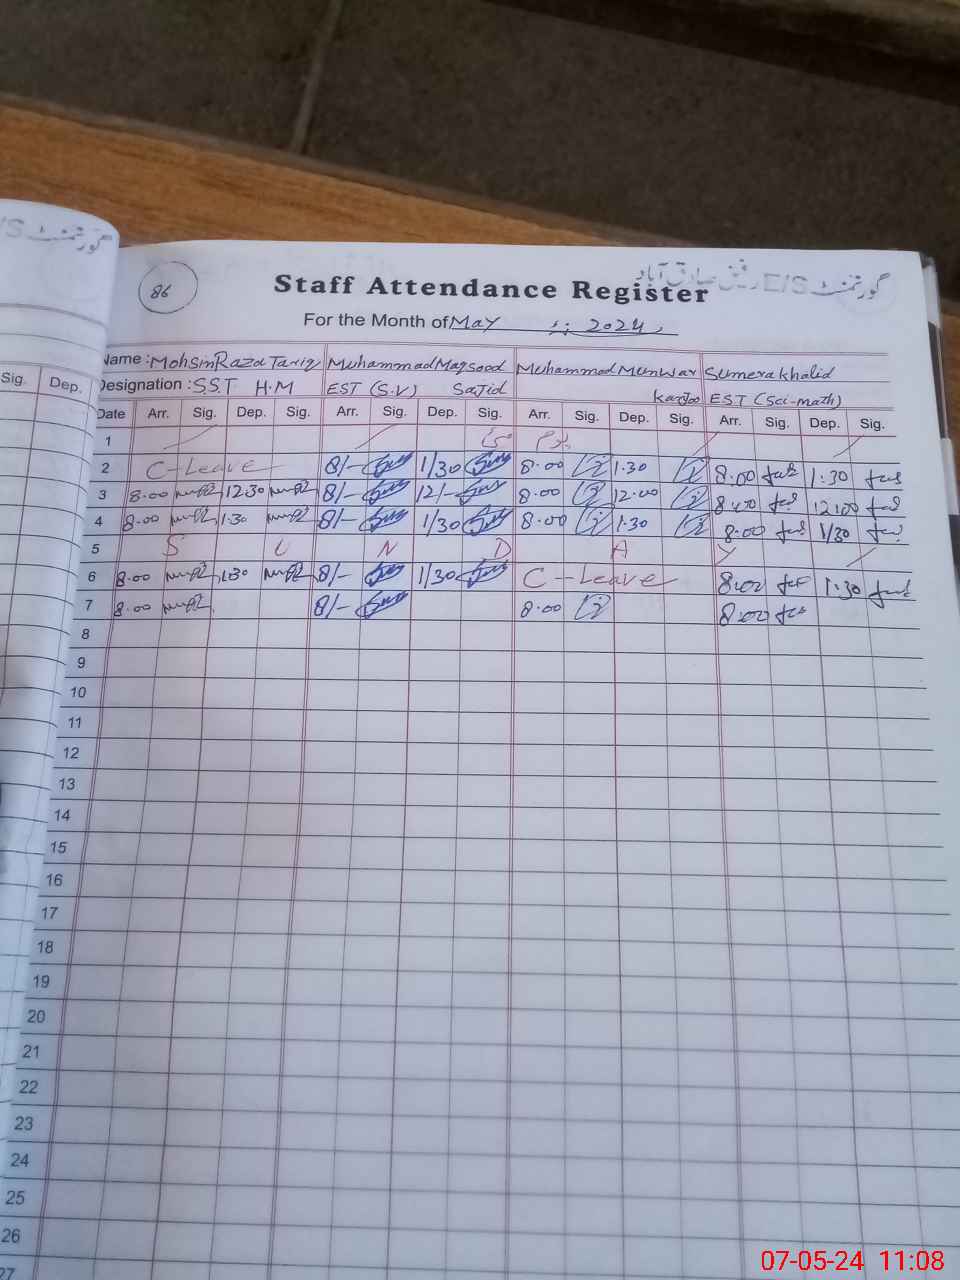 E/S گورنمنٹ
86
Staff Attendance Register
گورنمنٹ E/S رفیق صادق آباد
For the Month of May 2024
Name: Mohsin Raza Tariq Muhammad Maqsood Muhammad Munwar Sumera Khalid
Sig. Dep. Designation: S.S.T H.M EST (S.V) Sajid EST (Sci-math)
Date Arr. Sig. Dep. Sig. Arr. Sig. Dep. Sig. Arr. Sig. Dep. Sig. Arr. Sig. Dep. Sig.
1 یوم مئی
2 C-Leave 8/- 1/30 8.00 1.30 8:00 1:30
3 8.00 12.30 8/- 12/- 8.00 12.00 8:00 12:00
4 8.00 1.30 8/- 1/30 8.00 1.30 8:00 1/30
5 S U N D A Y
6 8.00 1.30 8/- 1/30 C-Leave 8:00 1:30
7 8.00 8/- 8.00 8:00
8
9
10
11
12
13
14
15
16
17
18
19
20
21
22
23
24
25
26
27
07-05-24 11:08